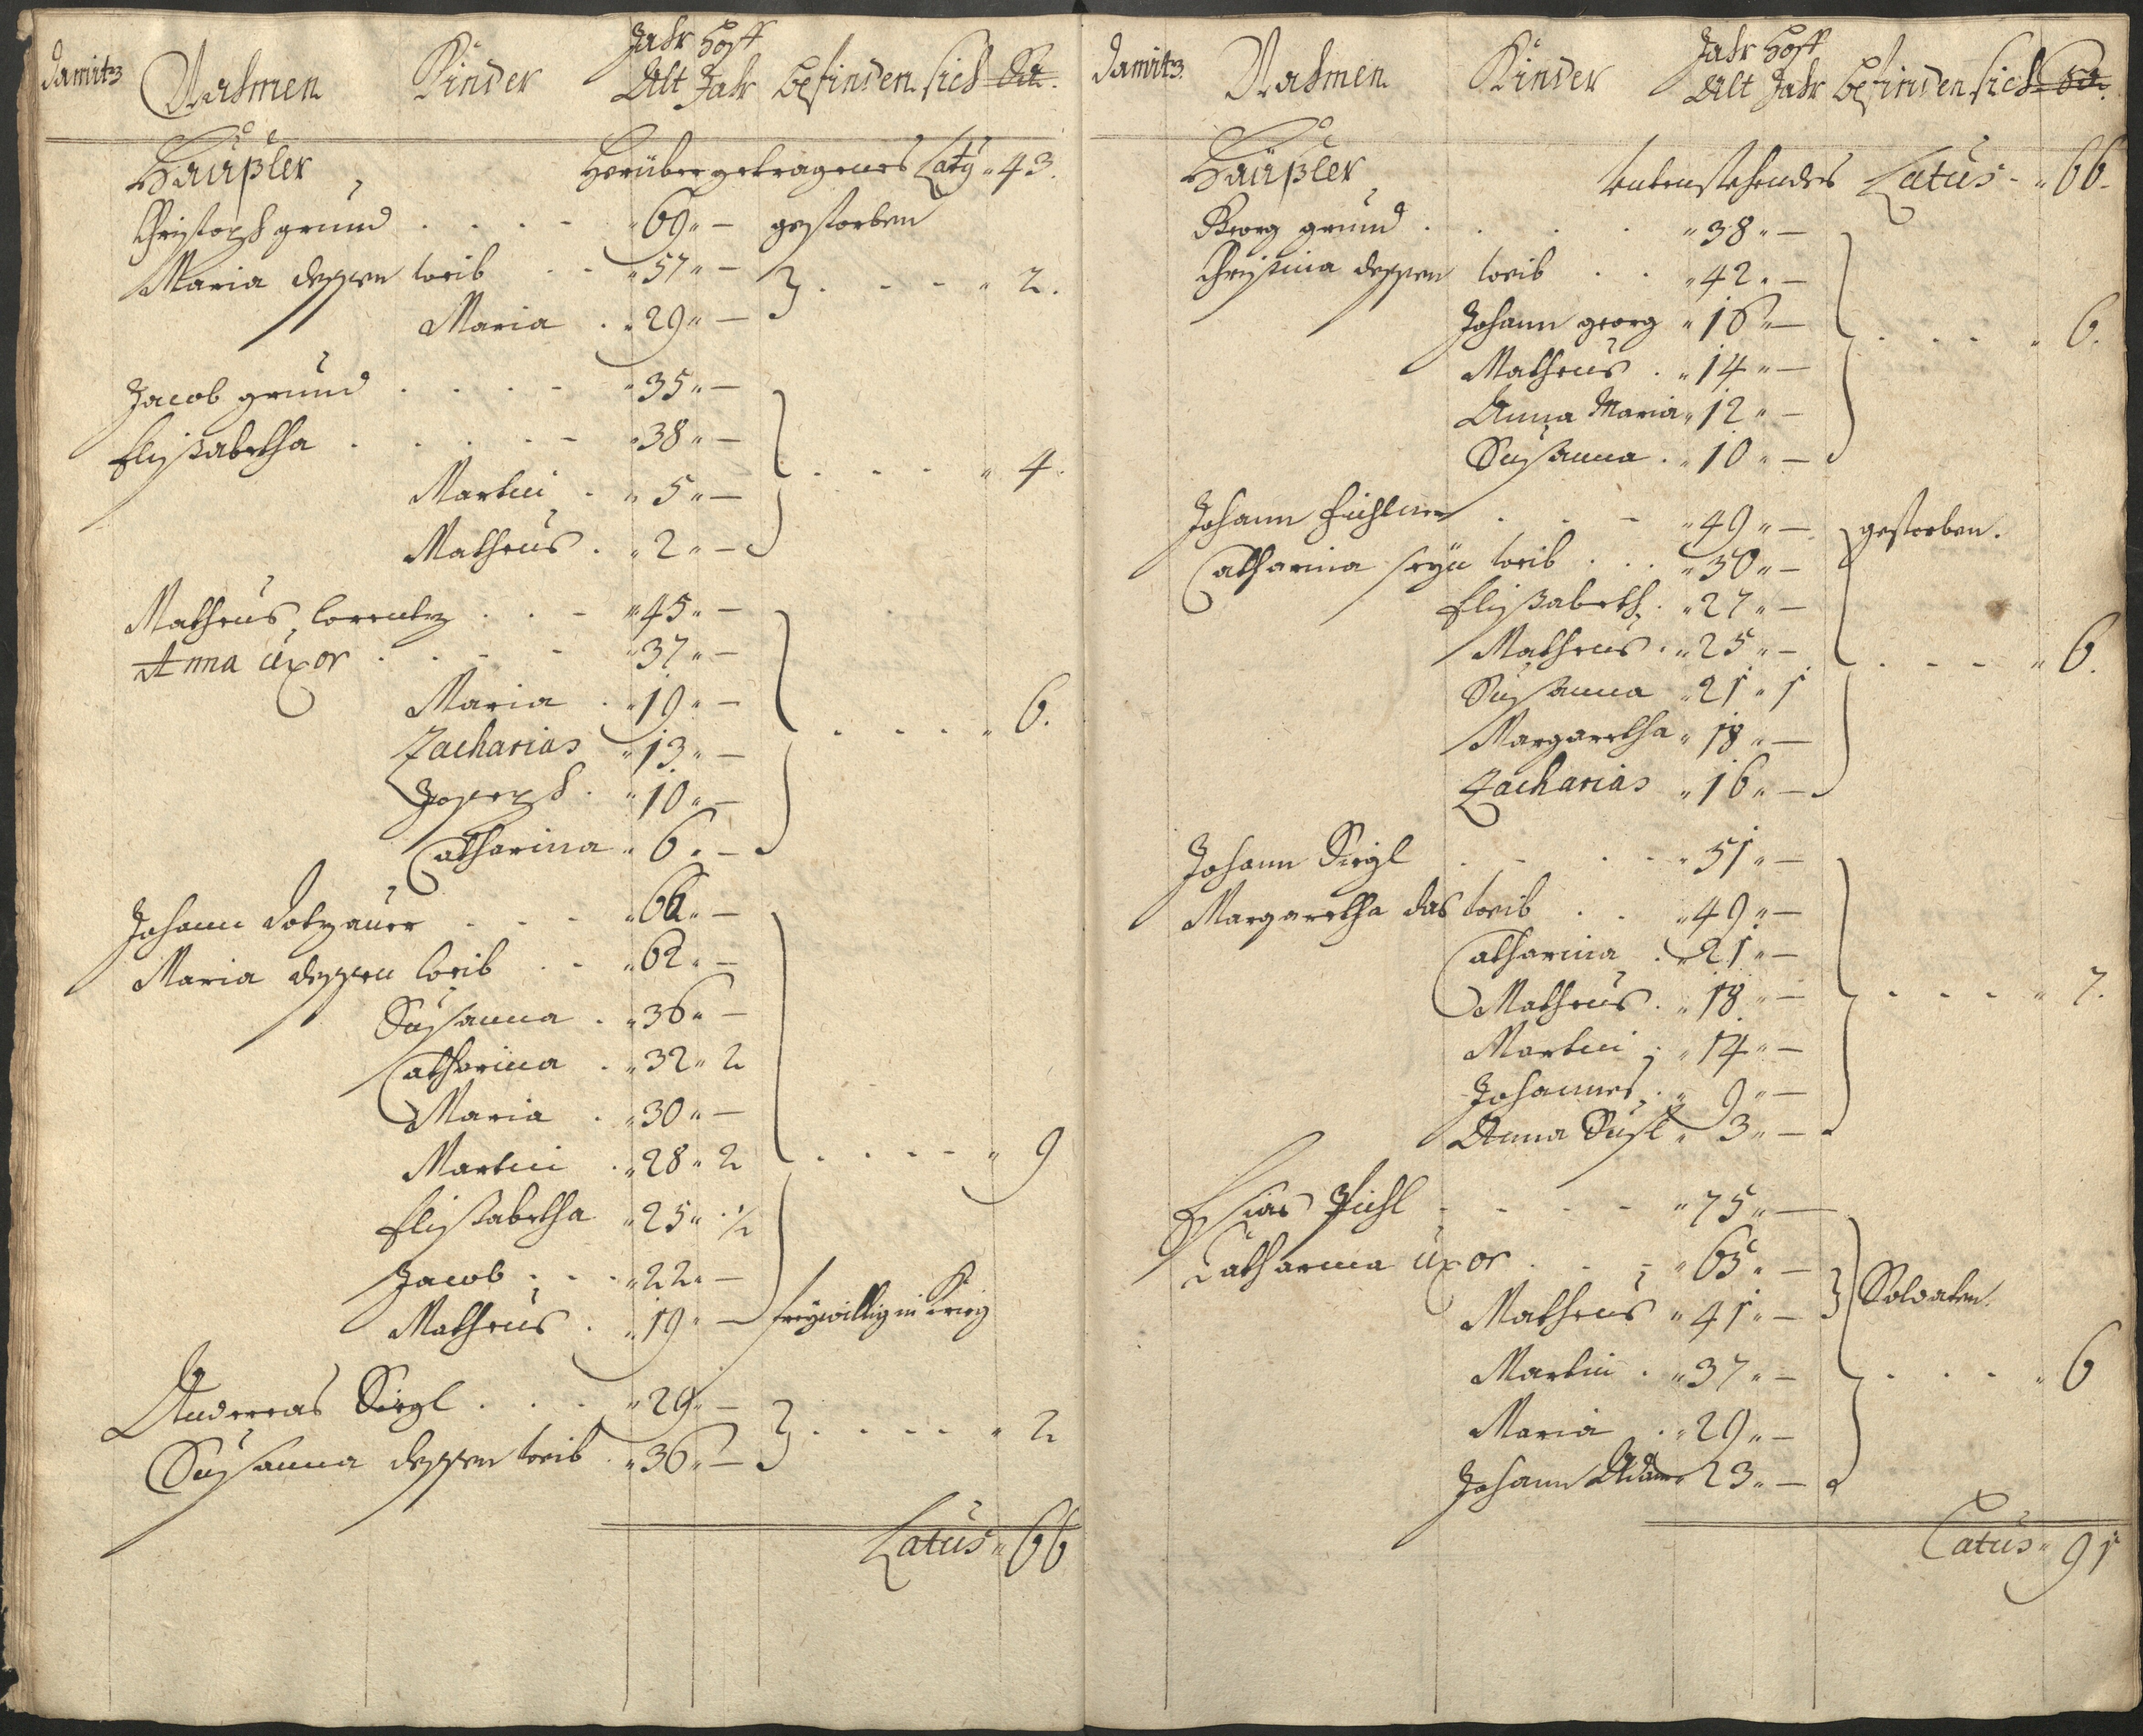 Damitz Nahmen Kinder Jahr Alt Hoff Jahr befinden sich
Häußler
Herüber getragenes Latq 43.
Christoph grund 69 — gestorben
Maria dessen weib 57 — 2.
Maria 29 —
Jacob grund 35 —
Elisabetha 38 — 4.
Martin 5 —
Matheus 2 —
Matheus Lorentz 45 —
Anna uxor 37 —
Maria 19 — 6.
Zacharias 13 —
Joseph 10 —
Catharina 6 —
Johann Dotzauer —
Maria dessen weib 62 —
Susanna 36 —
Catharina 32 2
Maria 30 —
Martin 28 2 9
Elisabetha 25 ½
Jacob 22 —
Matheus 19 — freywillig in Krieg
Andreas Siegl 29 — 2
Susanna dessen weib 36 —
Latus 66
Damitz Nahmen Kinder Jahr Alt Hoff Jahr befinden sich
Häußler
Latus 66
Georg grund 38 —
Christina dessen weib 42 —
Johann georg 16 — 6.
Matheus 14 —
Anna Maria 12 —
Susanna 10 —
Johann 49 — gestorben.
Catharina seyn weib 50 —
Elisabeth 27 —
Matheus 25 — 6.
Susanna 21 1
Margaretha 18 —
Zacharias 16 —
Johann Siegl 51 —
Margaretha das weib 49 —
Catharina 21 —
Matheus 18 — 7.
Martin 14 —
Johannes 9 —
Anna Sus 3 —
75 —
Catharina uxor 65 —
Matheus 41 — Soldaten.
Martin 37 — 6
Maria 29 —
Johann Adam 23 —
Latus 91